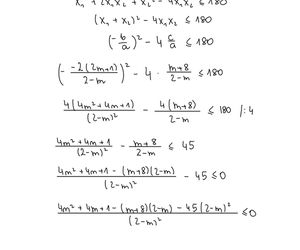 x₁² + 2x₁x₂ + x₂² - 4x₁x₂ ≤ 180
(x₁ + x₂)² - 4x₁x₂ ≤ 180
(-b/a)² - 4 c/a ≤ 180
(- -2(2m+1)/2-m)² - 4 · m+8/2-m ≤ 180
4(4m²+4m+1)/(2-m)² - 4(m+8)/2-m ≤ 180 /:4
4m²+4m+1/(2-m)² - m+8/2-m ≤ 45
4m²+4m+1-(m+8)(2-m)/(2-m)² - 45 ≤ 0
4m²+4m+1-(m+8)(2-m)-45(2-m)²/(2-m)² ≤ 0